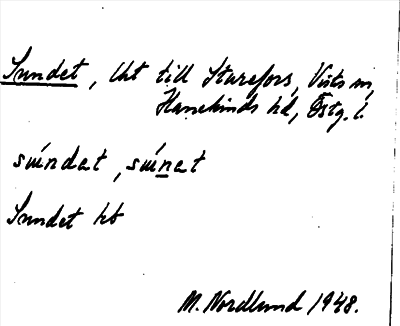 Sundet, lht till Starefors, Vists sn,
Hanekinds hd, Östg. l.
súndat, súnat
Sundet hb
M. Nordlund 1948.